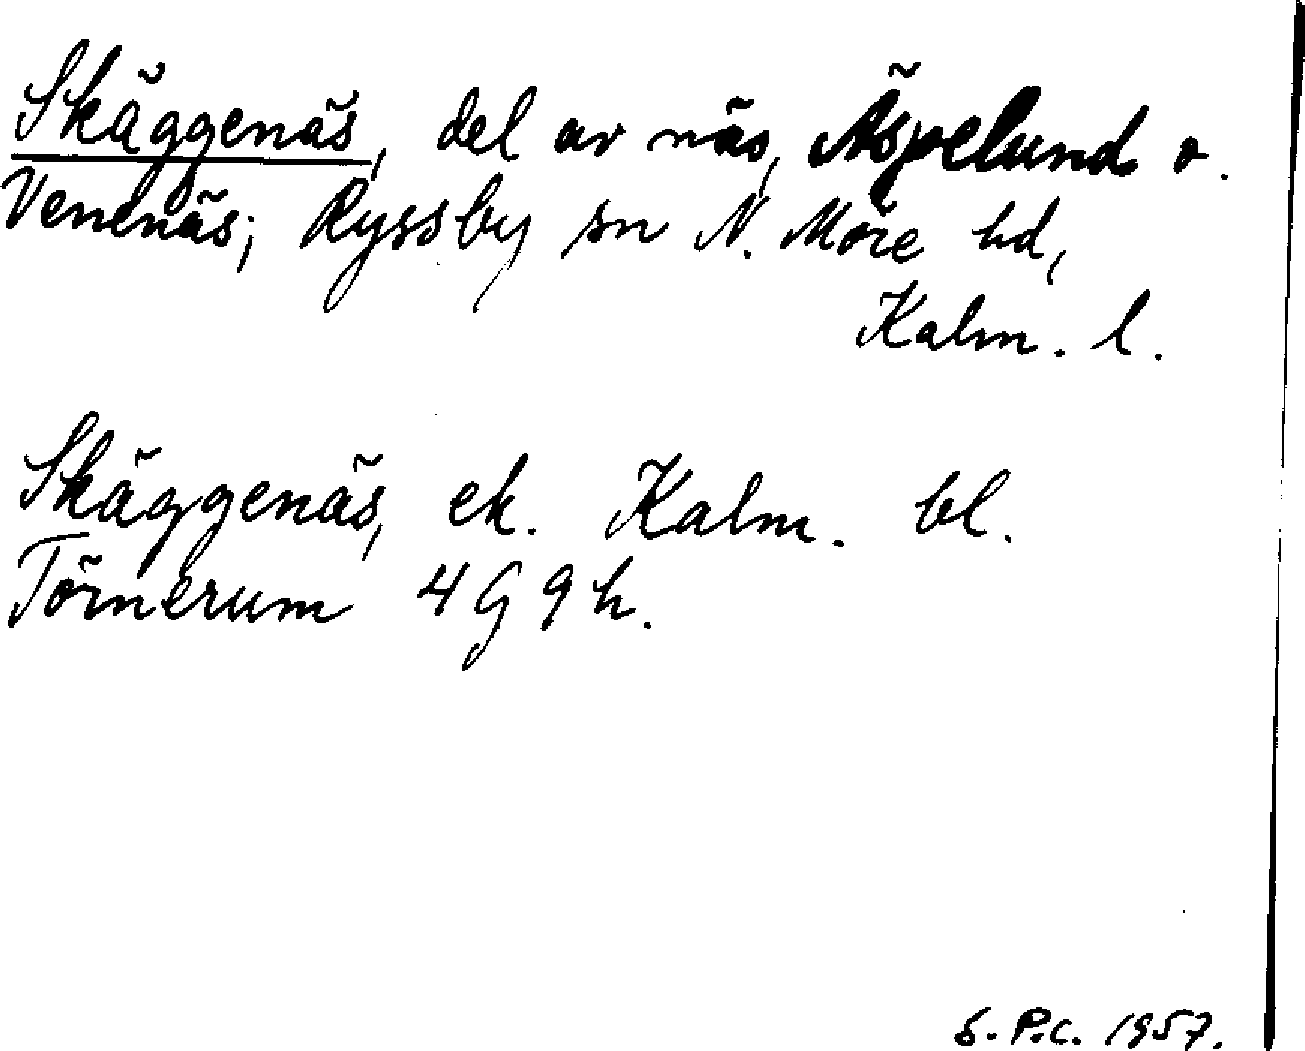 Skäggenäs, del av näs, Äspelund o.
Venenäs; Ryssby sn N. Möre hd,
Kalm. l.
Skäggenäs, ek. Kalm. bl.
Törnerum 4 G 9 h.
S.P.C. 1957.